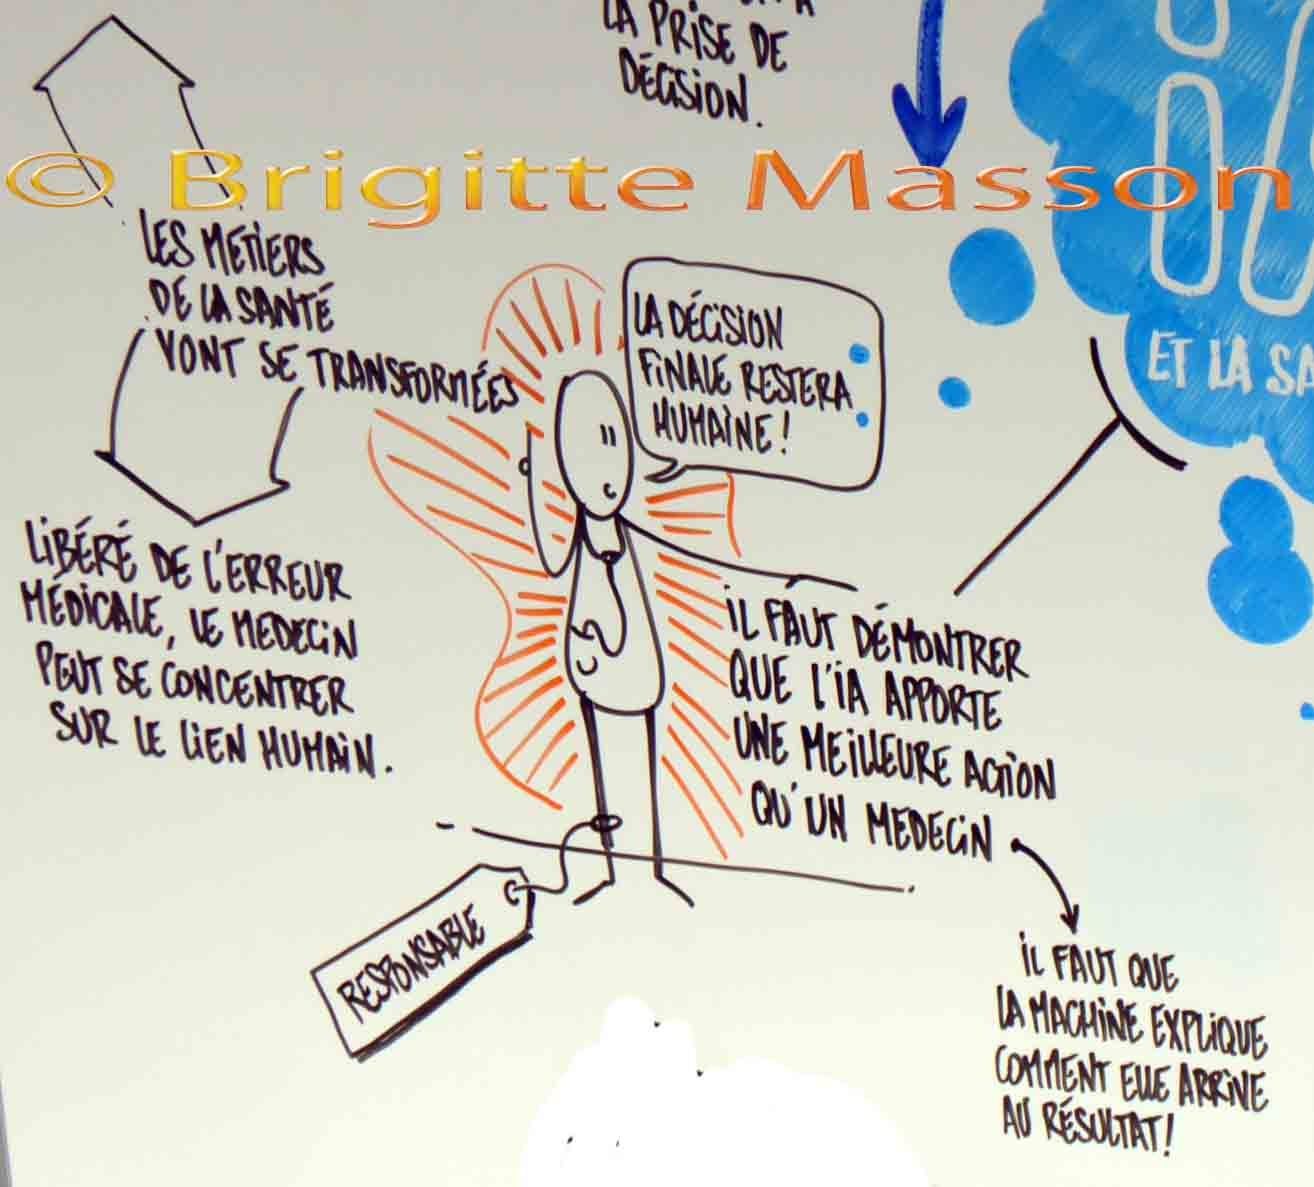 LA PRISE DE
DÉCISION.
© Brigitte Masson
LES METIERS
DE LA SANTÉ
VONT SE TRANSFORMÉES
LA DÉCISION
FINALE RESTERA
HUMAINE !
ET LA SA
LIBÉRÉ DE L'ERREUR
MÉDICALE, LE MEDECIN
PEUT SE CONCENTRER
SUR LE LIEN HUMAIN.
IL FAUT DÉMONTRER
QUE L'IA APPORTE
UNE MEILLEURE ACTION
QU'UN MEDECIN
RESPONSABLE
IL FAUT QUE
LA MACHINE EXPLIQUE
COMMENT ELLE ARRIVE
AU RÉSULTAT !